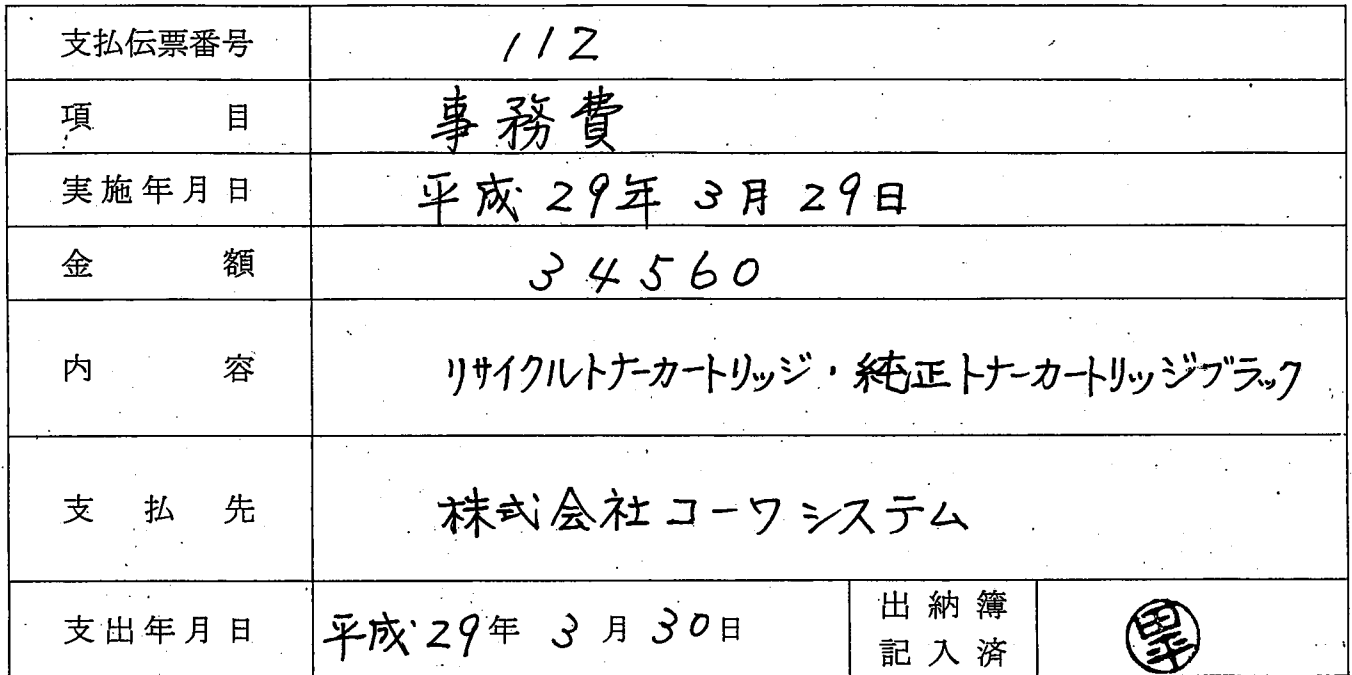 支払伝票番号 112
項目 事務費
実施年月日 平成29年3月29日
金額 34560
内容 リサイクルトナーカートリッジ・純正トナーカートリッジブラック
支払先 株式会社コーワシステム
支出年月日 平成29年3月30日 出納簿記入済